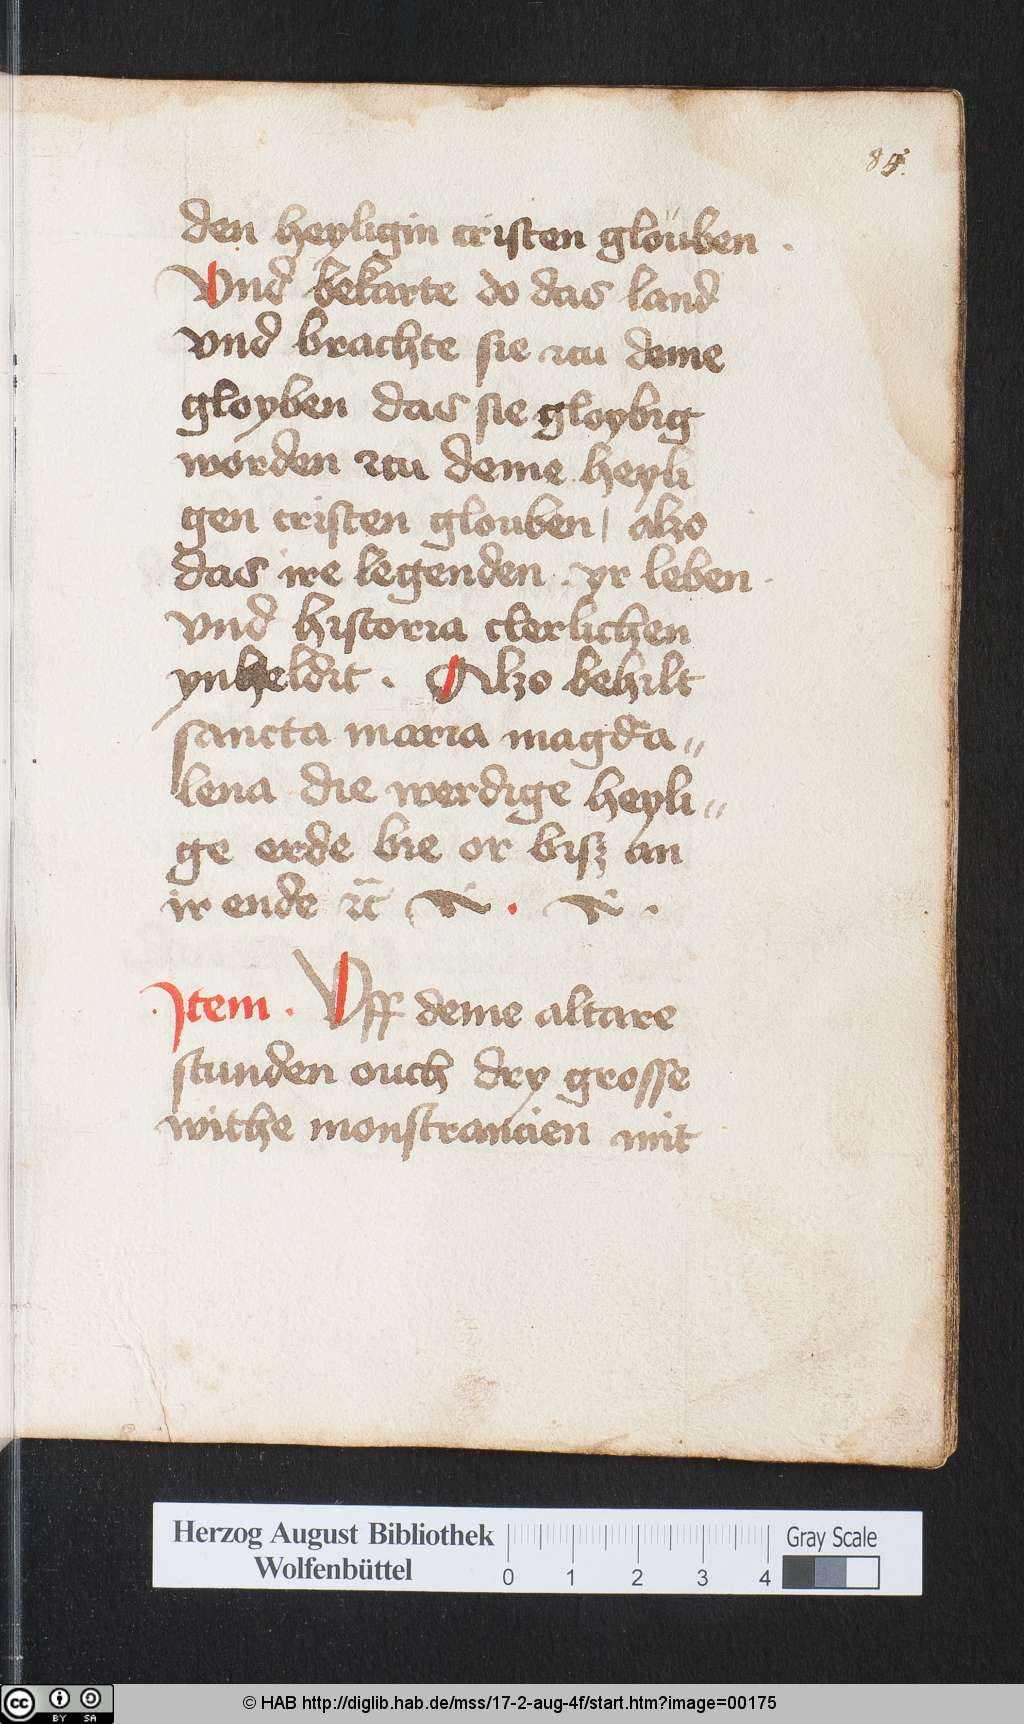 84.
den heyligin cristen glöuben .
Vnd bekarte do das land
vnd brachte sie czu deme
gloyben das sie gloybig
worden czu deme heyli
gen cristen glouben / alzo
das ire legenden . yr leben .
vnd historia clerlichen
ynheldit . Alzo behilt
sancta maria magda〃
lena die werdige heyli〃
ge erde bie or bisz an
ir ende ꝛc̄
Item . Vff deme altare
stunden ouch dry grosse
withe monstrancien mit
Herzog August Bibliothek
Wolfenbüttel
0 1 2 3 4
Gray Scale
cc BY SA
© HAB http://diglib.hab.de/mss/17-2-aug-4f/start.htm?image=00175